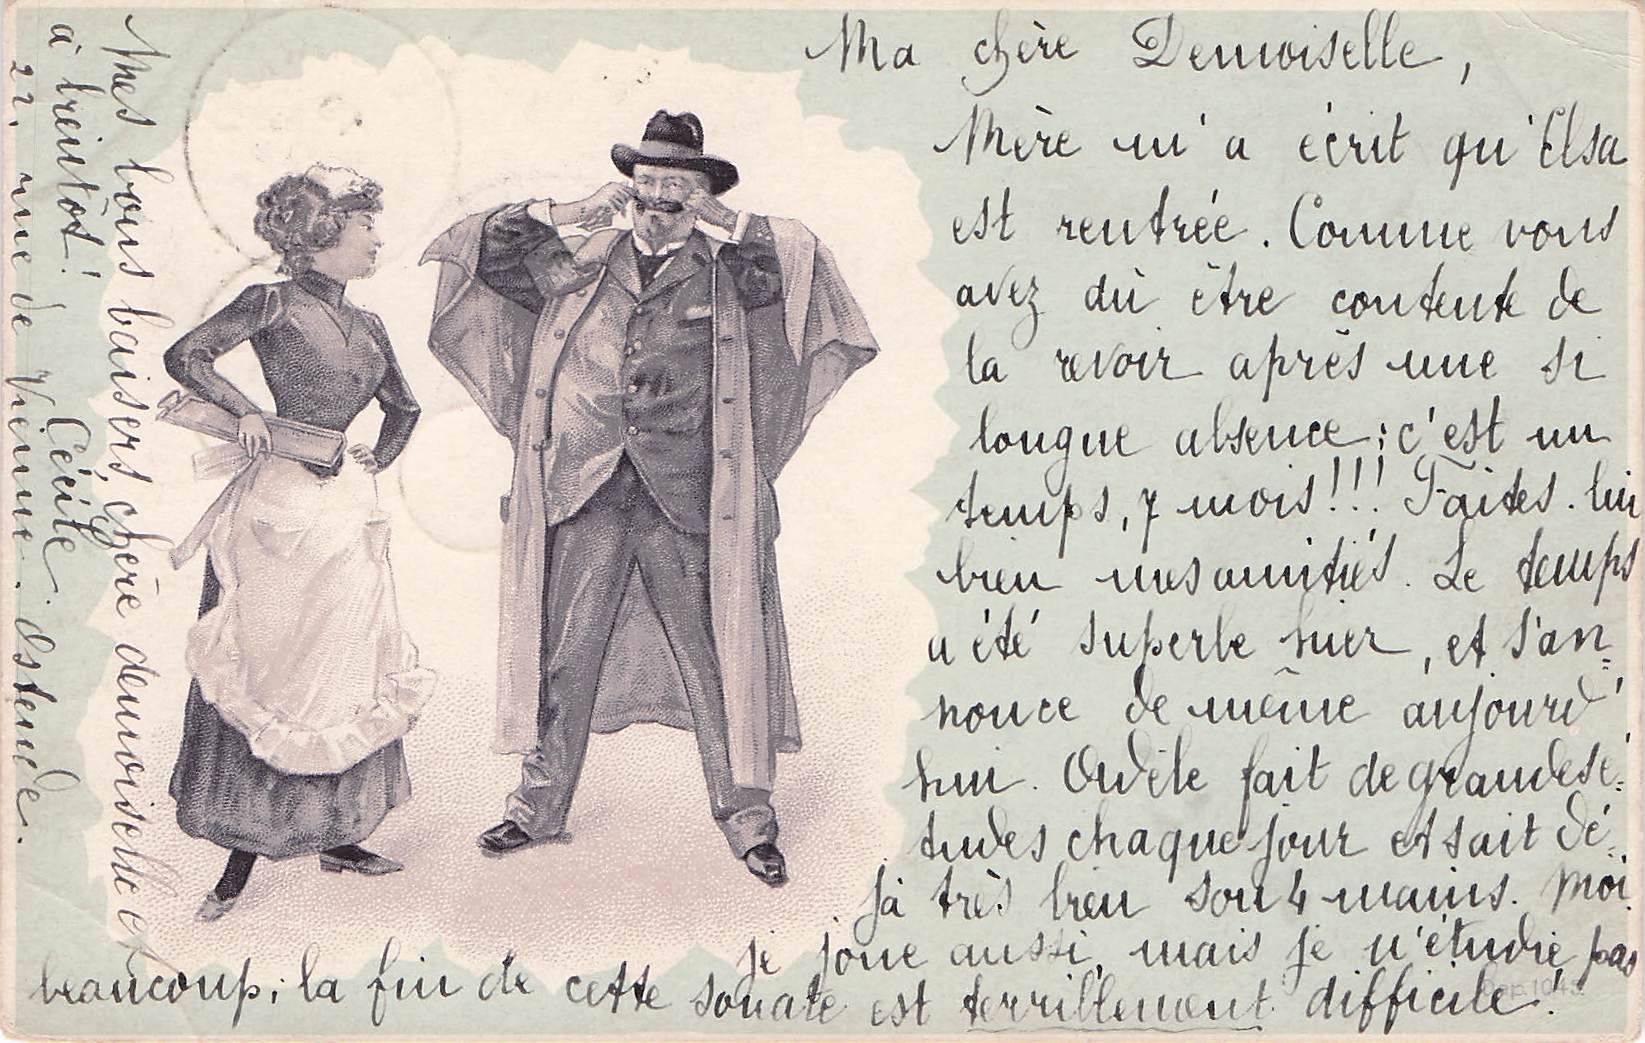 Ma chère Demoiselle,
Mère m'a écrit qu'Elsa
est rentrée. Comme vous
avez dû être contente de
la revoir après une si
longue absence; c'est un
temps, 7 mois!!! Faites-lui
bien mes amitiés. Le temps
a été superbe hier, et s'an=
nonce de même aujourd'
hui. Odile fait de grandes é=
tudes chaque jour et sait dé=
jà très bien son 4 mains. Moi
je joue aussi, mais je n'étudie pas
beaucoup; la fin de cette sonate est terriblement difficile!
Mes bons baisers, chère demoiselle et
à bientôt!
Cécile
22, rue de Vienne. Ostende.